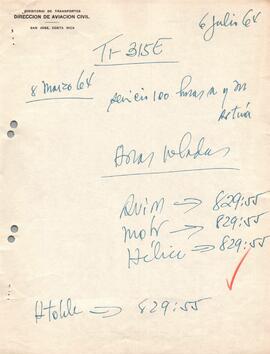 MINISTERIO DE TRANSPORTES
DIRECCION DE AVIACION CIVIL
SAN JOSE, COSTA RICA
6 Julio 64
TI-315E
8 Marzo 64
servicio 100 horas a y m
Horas voladas
Avión → 829:55
Motor → 829:55
Hélice → 829:55
→ 829:55